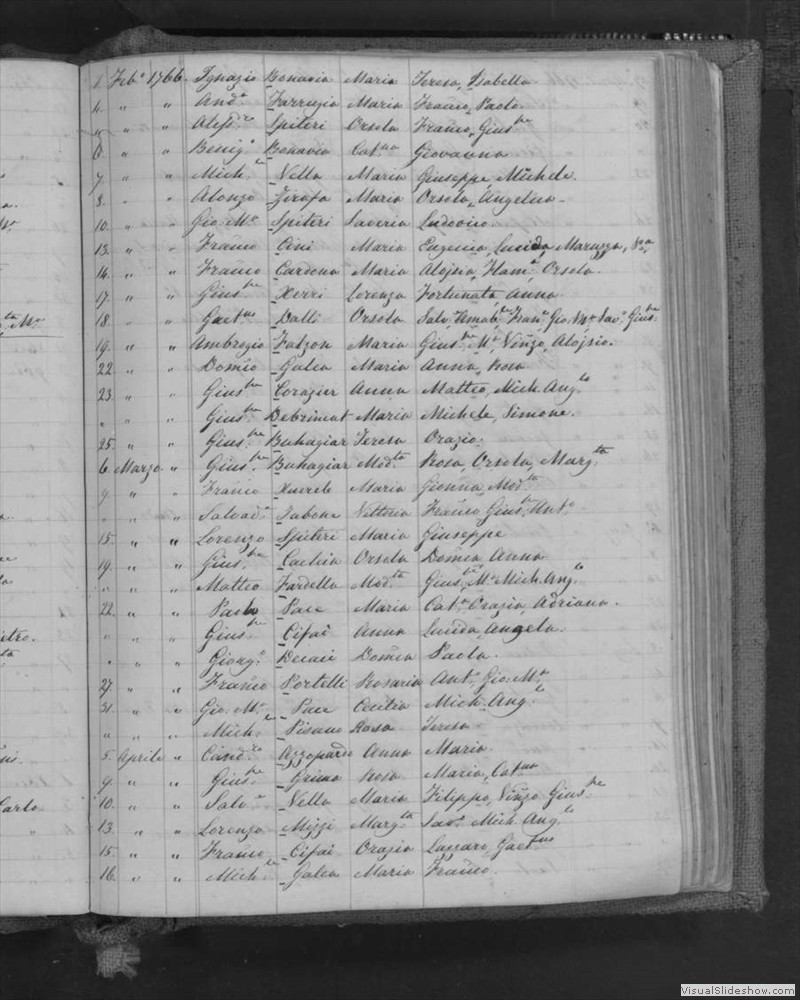 1. Feb.º 1766. Ignazio Bonavia Maria Teresa, Isabella
4. " " And.ª Farrugia Maria Franco, Paolo.
" " " Spiteri Orsola Franco, Gius.pe
6. " " Benig.º Bonavia Cat.na Giovanna
7. " " Mich.le Vella Maria Giuseppe Michele.
8. " " Alonzo Zirafa Maria Orsola, Angelica
10. " " Gio. M.ª Spiteri Saveria Ludovico.
13. " " Franco Cini Maria Eugenia, Lucida, Maruzza,
14. " " Franco Cardona Maria Alojsia, Orsola.
17. " " Gius.pe Xerri Lorenza Fortunata, Anna
18. " " Gaet.no Dalli Orsola Salv. Gio. M.ª Sav.º Gius.pe
19. " " Ambrogio Falzon Maria Gius.pe M.ª Vinzo, Alojsio.
22. " " Domco Galea Maria Anna, Rosa
23. " " Gius.pe Anna Matteo, Mich. Ang.lo
" " " Gius.pe Maria Michele, Simone.
25. " " Gius.pe Buhagiar Teresa Orazio.
6. Marzo " Gius.pe Buhagiar Mod.ta Rosa, Orsola, Marg.ta
9. " " Franco Xuereb Maria Gionna, Mod.ta
" " " Salvad.e Tabone Vittoria Franco Gius.pe Ant.º
15. " " Lorenzo Spiteri Maria Giuseppe
19. " " Gius.pe Cachia Orsola Domca Anna
" " " Matteo Fardella Mod.ta Gius.pe M.ª Mich. Ang.lo
22. " " Paolo Pace Maria Cat.ª Orazia, Adriana.
" " " Gius.pe Cifai Anna Lucida, Angela.
" " " Giorg.º Domca Paola.
27. " " Franco Portelli Rosaria Ant.º Gio. M.ª
31. " " Gio. M.ª Pace Cecilia Mich. Ang.lo
" " " Mich.le Pisano Rosa Teresa
5. Aprile " Cand.lo Azzopardo Anna Maria
9. " " Gius.pe Grima Rosa Maria, Cat.na
10. " " Salv.e Vella Maria Filippo, Vinzo Gius.pe
13. " " Lorenzo Mizzi Marg.ta Sav.º Mich. Ang.lo
15. " " Franco Cifai Orazia Lazzaro, Gaet.no
16. " " Mich.le Galea Maria Franco.
VisualSlideshow.com